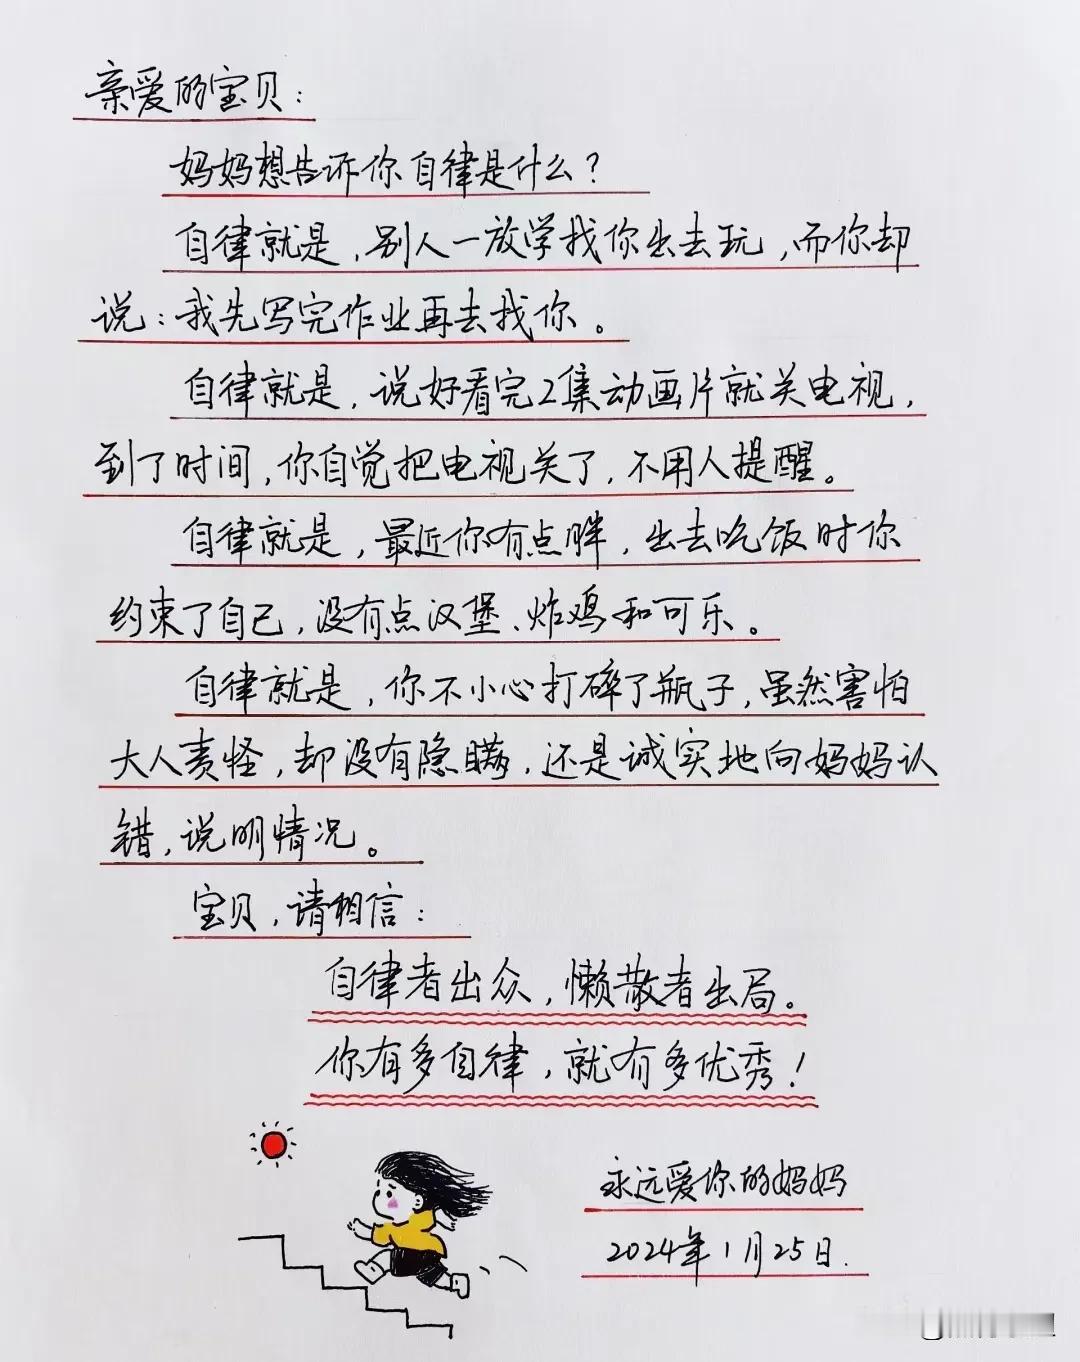 亲爱的宝贝：
妈妈想告诉你自律是什么？
自律就是，别人一放学找你出去玩，而你却
说：我先写完作业再去找你。
自律就是，说好看完2集动画片就关电视，
到了时间，你自觉把电视关了，不用人提醒。
自律就是，最近你有点胖，出去吃饭时你
约束了自己，没有点汉堡、炸鸡和可乐。
自律就是，你不小心打碎了瓶子，虽然害怕
大人责怪，却没有隐瞒，还是诚实地向妈妈认
错，说明情况。
宝贝，请相信：
自律者出众，懒散者出局。
你有多自律，就有多优秀！
永远爱你的妈妈
2024年1月25日.